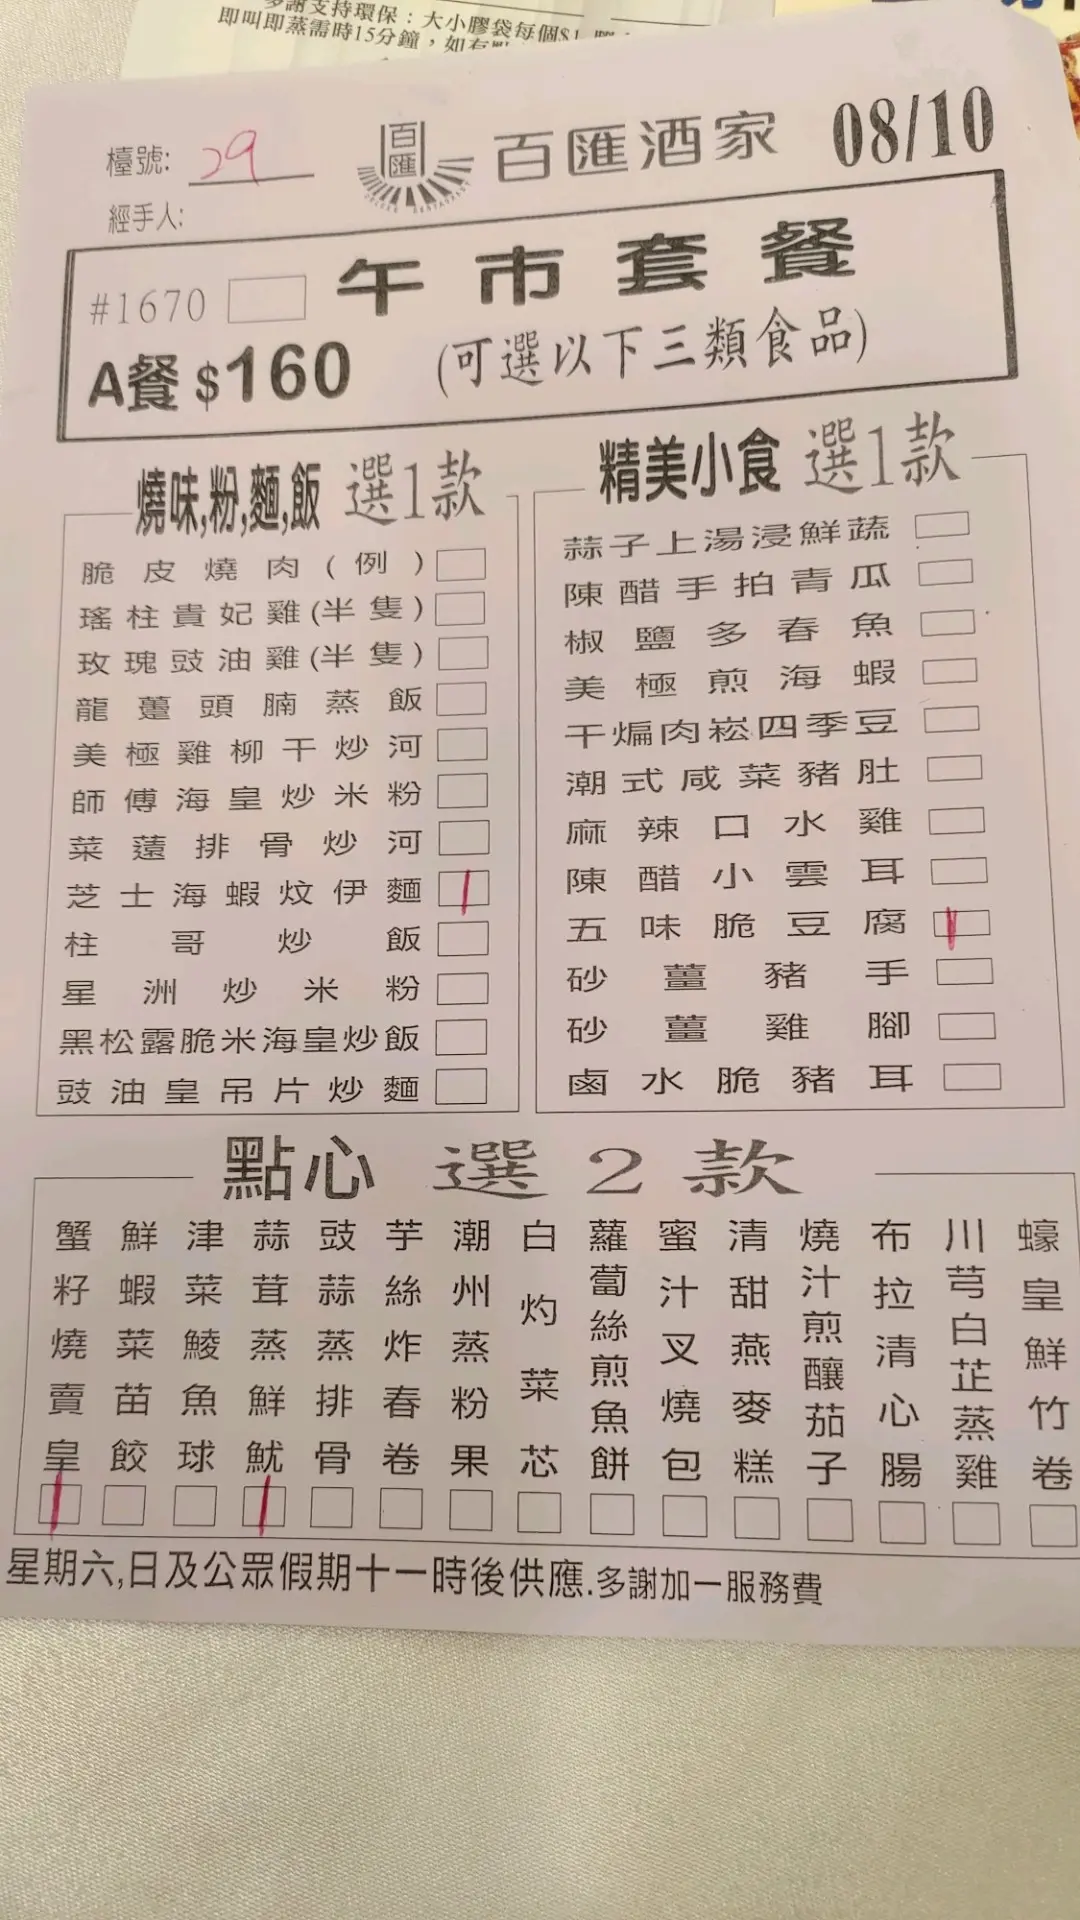 多謝支持環保：大小膠袋每個$1
即叫即蒸需時15分鐘，如有
檯號: 29
百匯
百匯酒家
08/10
經手人:
#1670
午市套餐
A餐 $160
(可選以下三類食品)
燒味,粉,麵,飯 選1款
脆皮燒肉(例)
瑤柱貴妃雞(半隻)
玫瑰豉油雞(半隻)
龍躉頭腩蒸飯
美極雞柳干炒河
師傅海皇炒米粉
菜薳排骨炒河
芝士海蝦炆伊麵
柱哥炒飯
星洲炒米粉
黑松露脆米海皇炒飯
豉油皇吊片炒麵
精美小食 選1款
蒜子上湯浸鮮蔬
陳醋手拍青瓜
椒鹽多春魚
美極煎海蝦
干煸肉崧四季豆
潮式咸菜豬肚
麻辣口水雞
陳醋小雲耳
五味脆豆腐
砂薑豬手
砂薑雞腳
鹵水脆豬耳
點心 選2款
蟹籽燒賣皇
鮮蝦菜苗餃
津菜鯪魚球
蒜茸蒸鮮魷
豉蒜蒸排骨
芋絲炸春卷
潮州蒸粉果
白灼菜芯
蘿蔔絲煎魚餅
蜜汁叉燒包
清甜燕麥糕
燒汁煎釀茄子
布拉清心腸
川芎白芷蒸雞
蠔皇鮮竹卷
星期六,日及公眾假期十一時後供應.多謝加一服務費